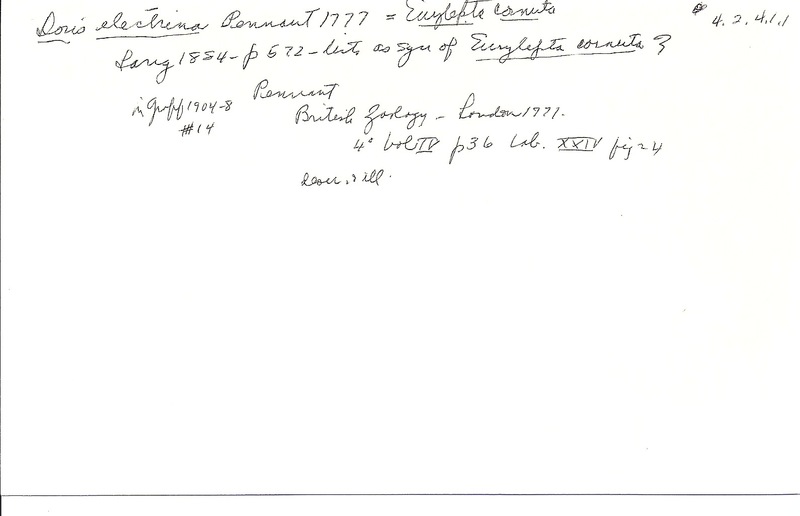 Doris electrina Pennant 1777 = Eurylepta cornuta
4.2.4.1.1
Lang 1884 - p 572 - lists as syn of Eurylepta cornuta ?
in Graff 1904-8
#14
Pennant
British Zoology - London 1777.
4° Vol IV p36 tab. XXIV fig 24
descr. & ill.